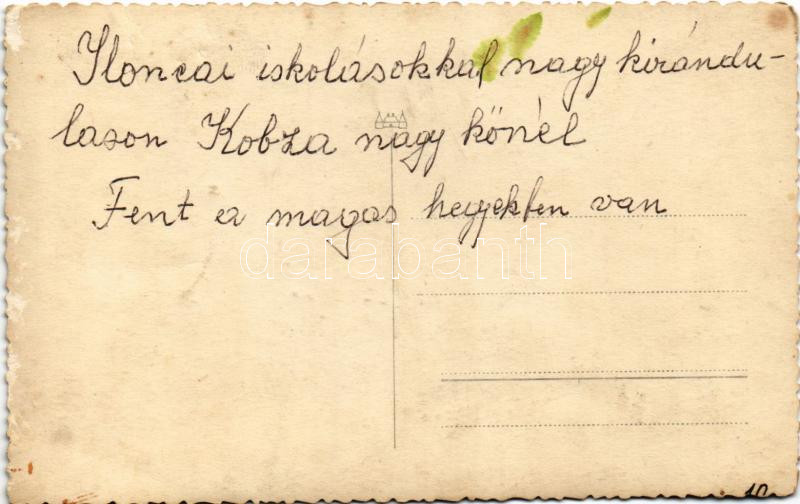 Iloncai iskolásokkal nagy kirándu-
lason Kobza nagy kőnél
Fent a magas hegyekben van
darabanth
10